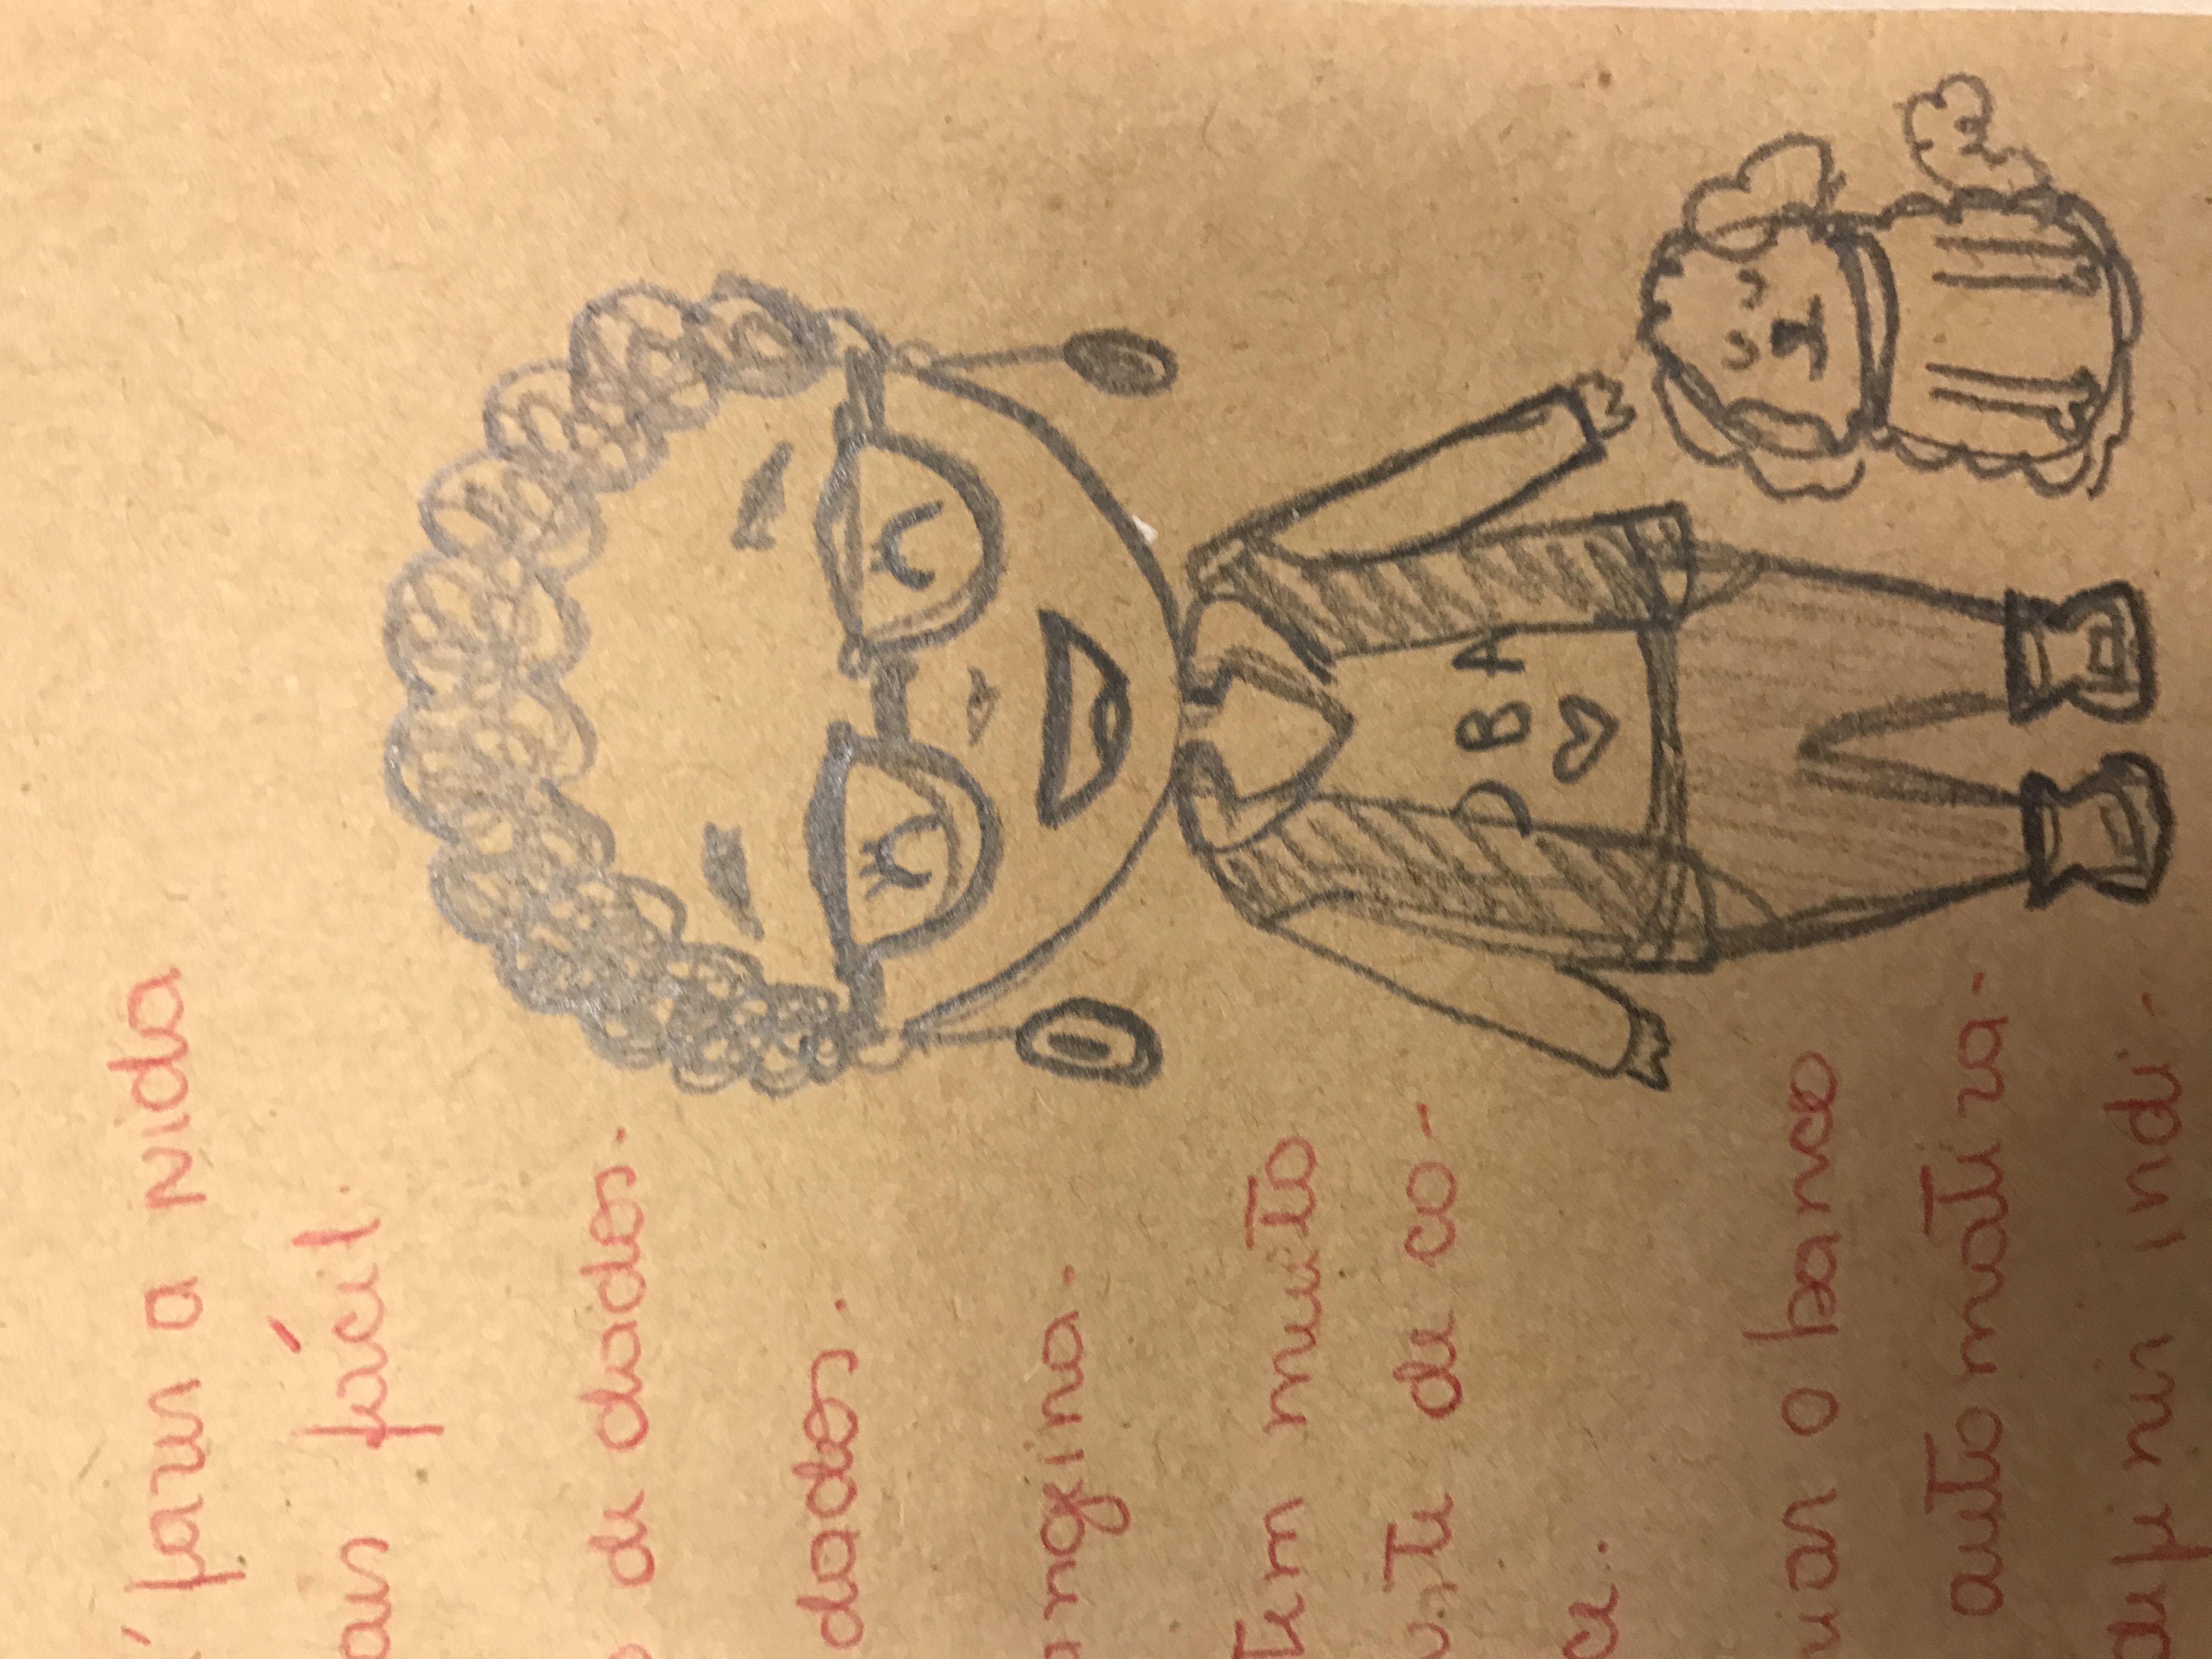 fazer a vida
ais fácil.
o de dados.
dados.
angeira.
tem muito
de co-
DBA
ce.
o banco
automatiza-
definir indi-